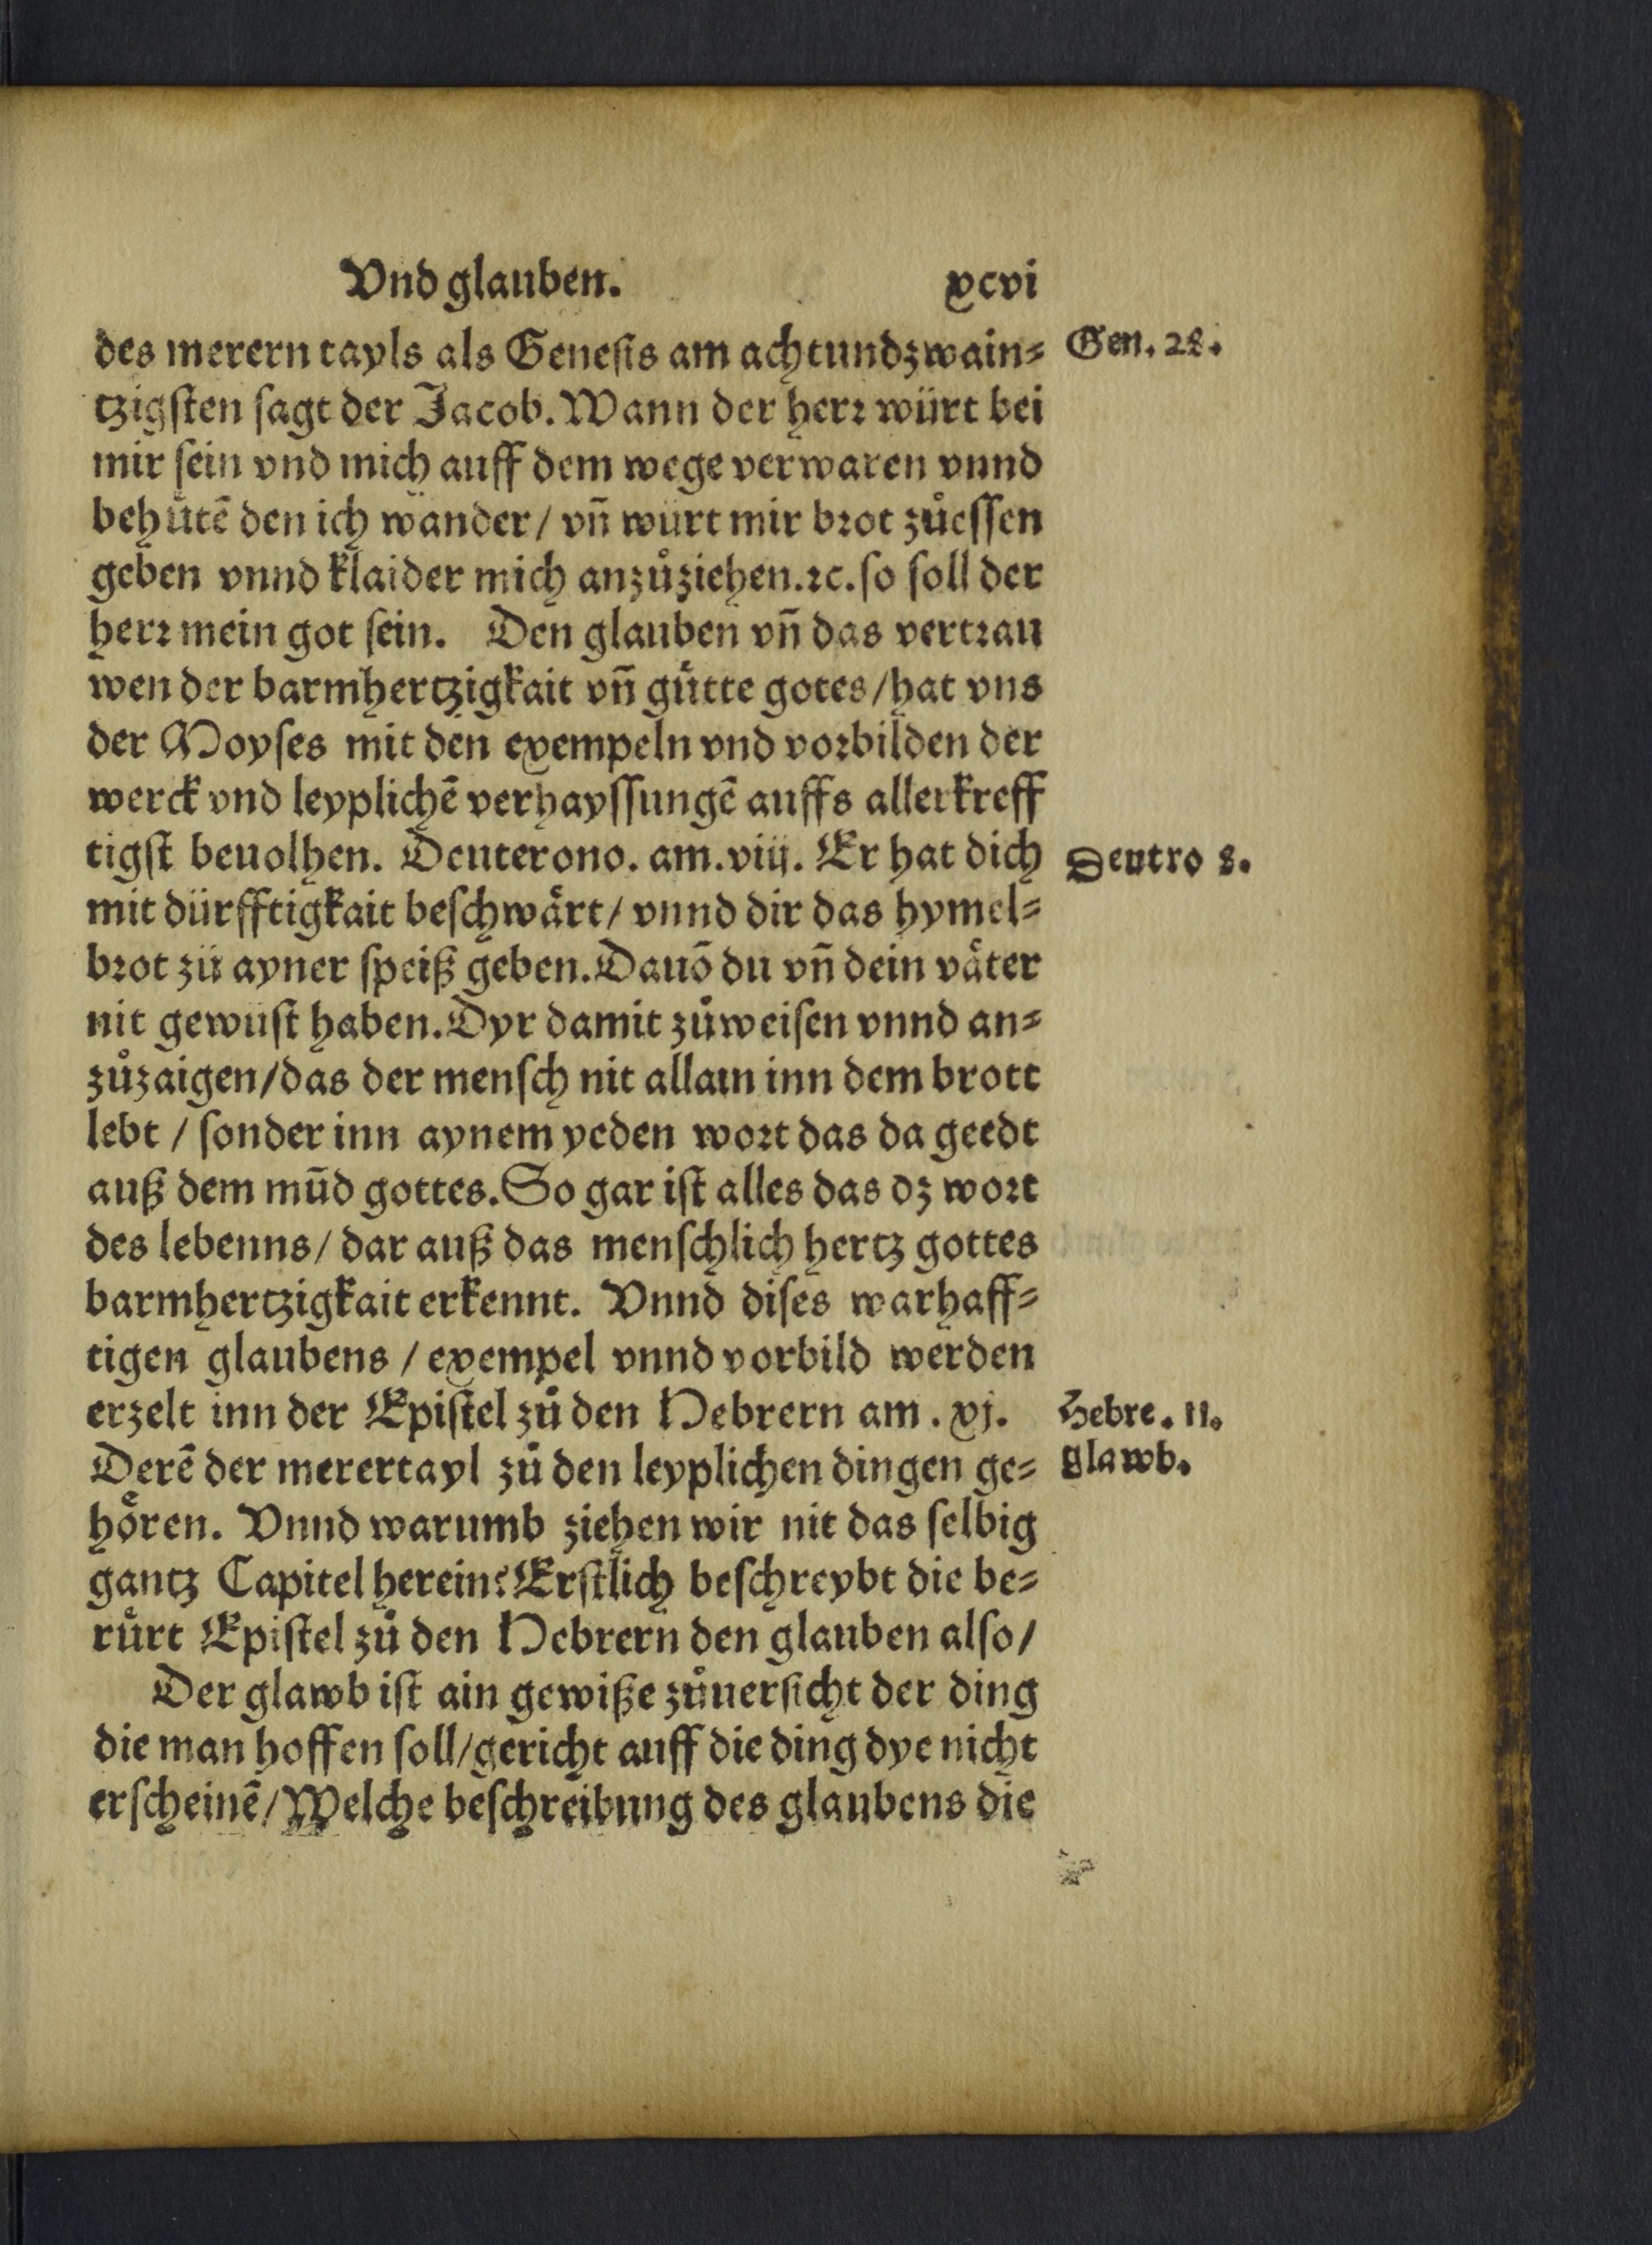 Vnd glauben. xcvi
des merern tayls als Geneſis am achtundzwain⸗ Gen. 28.
tzigſten ſagt der Jacob. Wann der herꝛ würt bei
mir ſein vnd mich auff dem wege verwaren vnnd
behuͤtē den ich wander / vñ wuͤrt mir bꝛot zuͦeſſen
geben vnnd klaider mich anzuͦziehen.ꝛc. ſo ſoll der
herꝛ mein got ſein. Den glauben vñ das vertꝛau
wen der barmhertzigkait vñ guͤtte gotes / hat vns
der Moyſes mit den exempeln vnd voꝛbilden der
werck vnd leyplichē verhayſſungē auffs allerkreff
tigſt beuolhen. Deuterono. am. viij. Er hat dich Deutro 8.
mit dürfftigkait beſchwaͤrt / vnnd dir das hymel⸗
bꝛot zü ayner ſpeiß geben. Dauō du vñ dein vaͤter
nit gewuſt haben. Dyr damit zuͦweiſen vnnd an⸗
zuͦzaigen / das der menſch nit allain inn dem brott
lebt / ſonder inn aynem yeden woꝛt das da geedt
auß dem mūd gottes. So gar iſt alles das dz woꝛt
des lebenns / dar auß das menſchlich hertz gottes
barmhertzigkait erkennt. Vnnd diſes warhaff⸗
tigen glaubens / exempel vnnd vorbild werden
erzelt inn der Epiſtel zuͦ den Hebrern am . xj. Hebre. 11.
Derē der merertayl zuͦ den leyplichen dingen ge⸗ glawb.
hoͤren. Vnnd warumb ziehen wir nit das ſelbig
gantz Capitel herein? Erſtlich beſchreybt die be⸗
ruͤrt Epiſtel zuͦ den Hebrern den glauben alſo /
Der glawb iſt ain gewiße zuͦuerſicht der ding
die man hoffen ſoll / gericht auff die ding dye nicht
erſcheinē / Welche beſchreibung des glaubens die